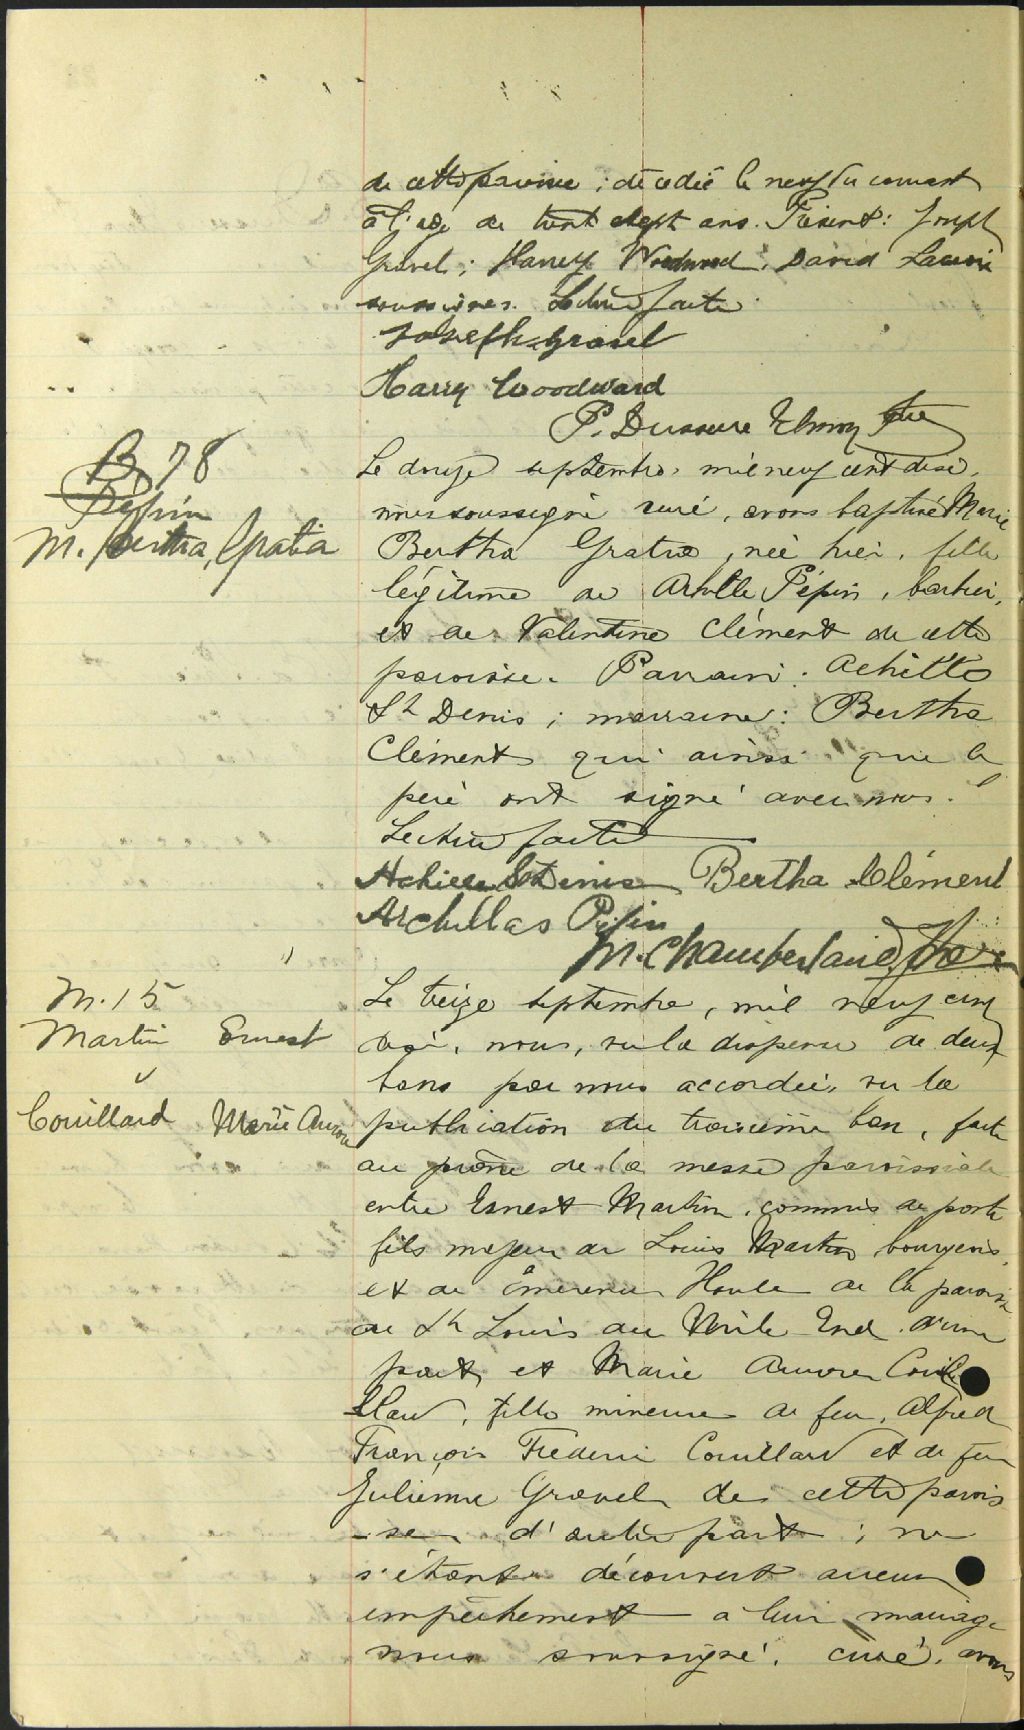 de cette paroisse ; décédé le neuf du courant
à l'age de trent sept ans. Présent : Joseph
Gravel ; Harrey Woodward, David
soussignés. Lecture faite
Joseph Gravel
Harry Woodward
P.
B 78
Pépin
M. Bertha, Gratia
Le douze septembre mil neuf cent dix,
nous soussigné curé, avons baptisé Marie
Bertha Gratia, née hier, fille
légitime de Pépin, barbier,
et de Valentine Clément de cette
paroisse. Parrain : Achille
St Denis ; marraine : Bertha
Clément qui ainsi que le
père ont signé avec nous.
Lecture faite
Achille St Denis Bertha Clément
Archillas Pépin
M. Chamberland, Ptre
M. 15
Martin Ernest
&
Couillard Marie Aurore
Le treize septembre, mil neuf cent
dix, nous, vu la dispense de deux
bans par nous accordée, vu la
publication du troisième ban, faite
au prône de la messe paroissiale
entre Ernest Martin, commis de poste
fils majeur de Louis Martin, bourgeois,
et de Emerence Houle de la paroisse
de St Louis du Mile End d'une
part, et Marie Aurore Coui
llard, fille mineure de feu, Alfred
François Frederic Couillard et de feu
Julienne Gravel de cette parois
-se, d'autre part ; ne
s'étant découvert aucun
empêchement à leur mariage
nous soussigné, curé, avons